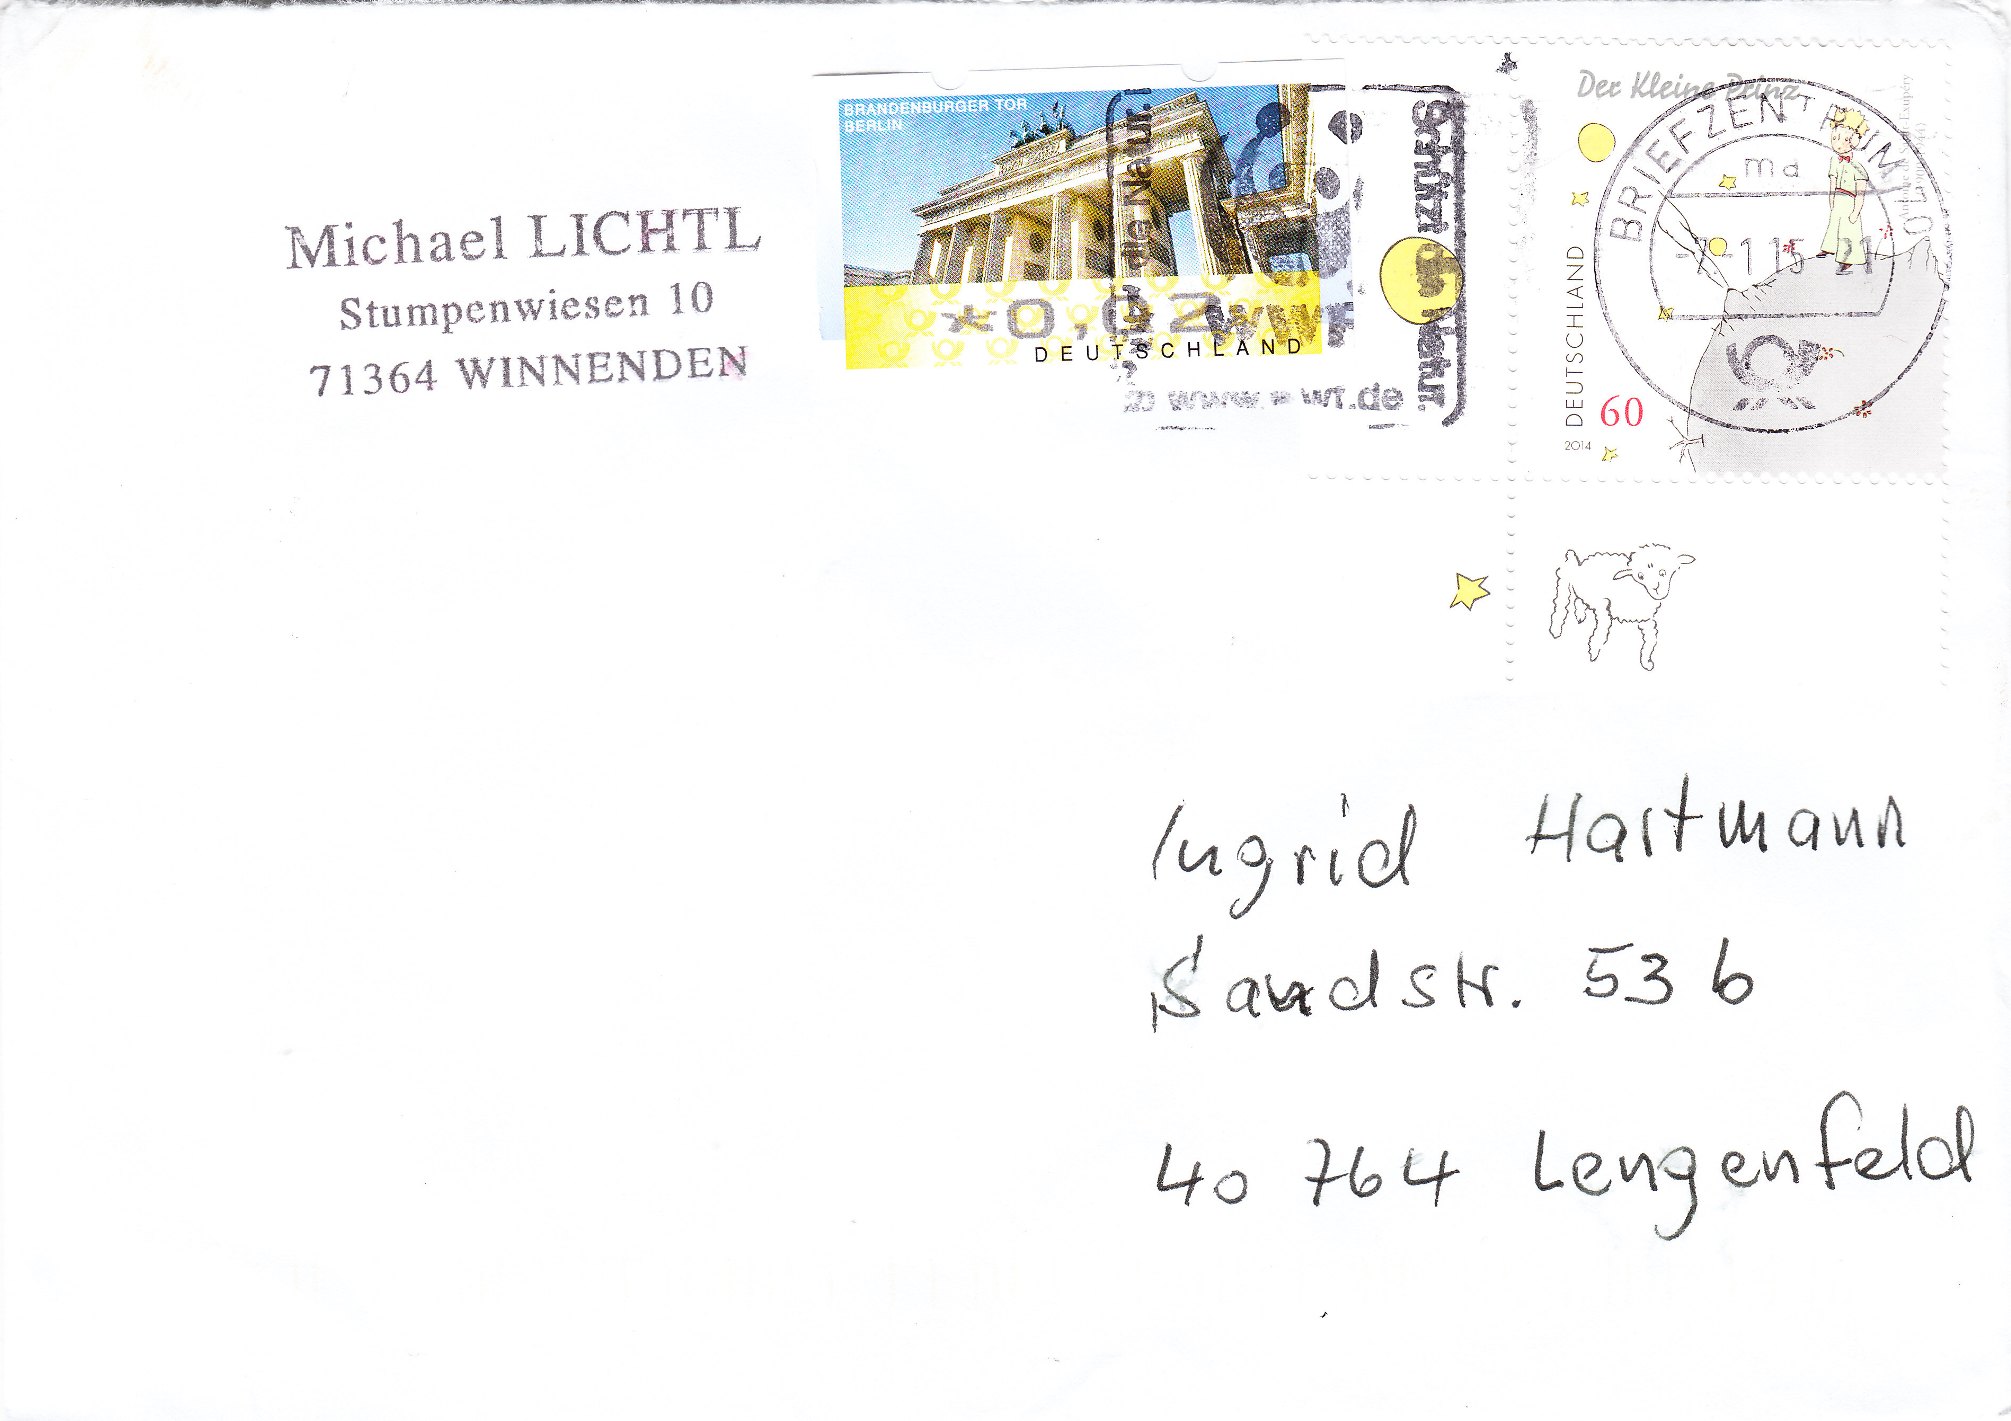 Michael LICHTL
Stumpenwiesen 10
71364 WINNENDEN
BRANDENBURGER TOR
BERLIN
*0,02
DEUTSCHLAND
Schützt die Natur.
www
wwf.de
Der Kleine Prinz
DEUTSCHLAND
60
2014
BRIEFZENTRUM
ma
-7-1 15 21
Ingrid Hartmann
Sandstr. 53 b
40 764 Lengenfeld